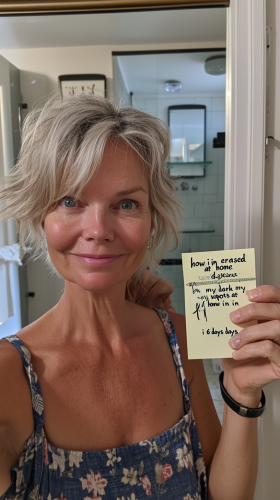 how i in erased
at home
my dark my
spots at
home in in
i 6 days days